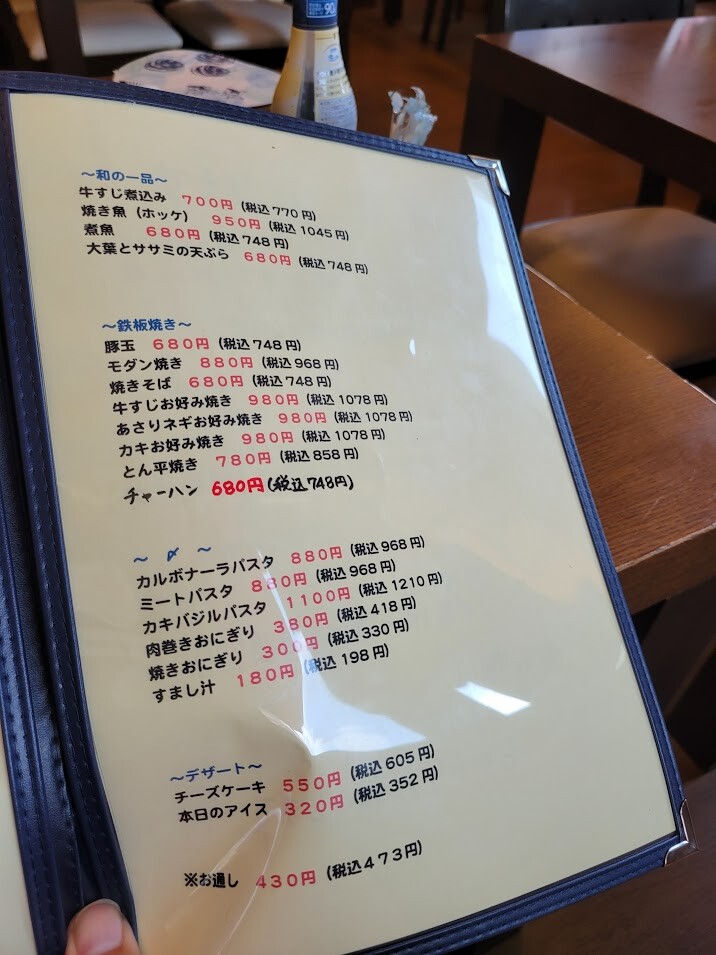 ～和の一品～
牛すじ煮込み 700円 (税込770円)
焼き魚 (ホッケ) 950円 (税込1045円)
煮魚 680円 (税込748円)
大葉とササミの天ぷら 680円 (税込748円)
～鉄板焼き～
豚玉 680円 (税込748円)
モダン焼き 880円 (税込968円)
焼きそば 680円 (税込748円)
牛すじお好み焼き 980円 (税込1078円)
あさりネギお好み焼き 980円 (税込1078円)
カキお好み焼き 980円 (税込1078円)
とん平焼き 780円 (税込858円)
チャーハン 680円(税込748円)
～ 〆 ～
カルボナーラパスタ 880円 (税込968円)
ミートパスタ 880円 (税込968円)
カキバジルパスタ 1100円 (税込1210円)
肉巻きおにぎり 380円 (税込418円)
焼きおにぎり 300円 (税込330円)
すまし汁 180円 (税込198円)
～デザート～
チーズケーキ 550円 (税込605円)
本日のアイス 320円 (税込352円)
※お通し 430円 (税込473円)